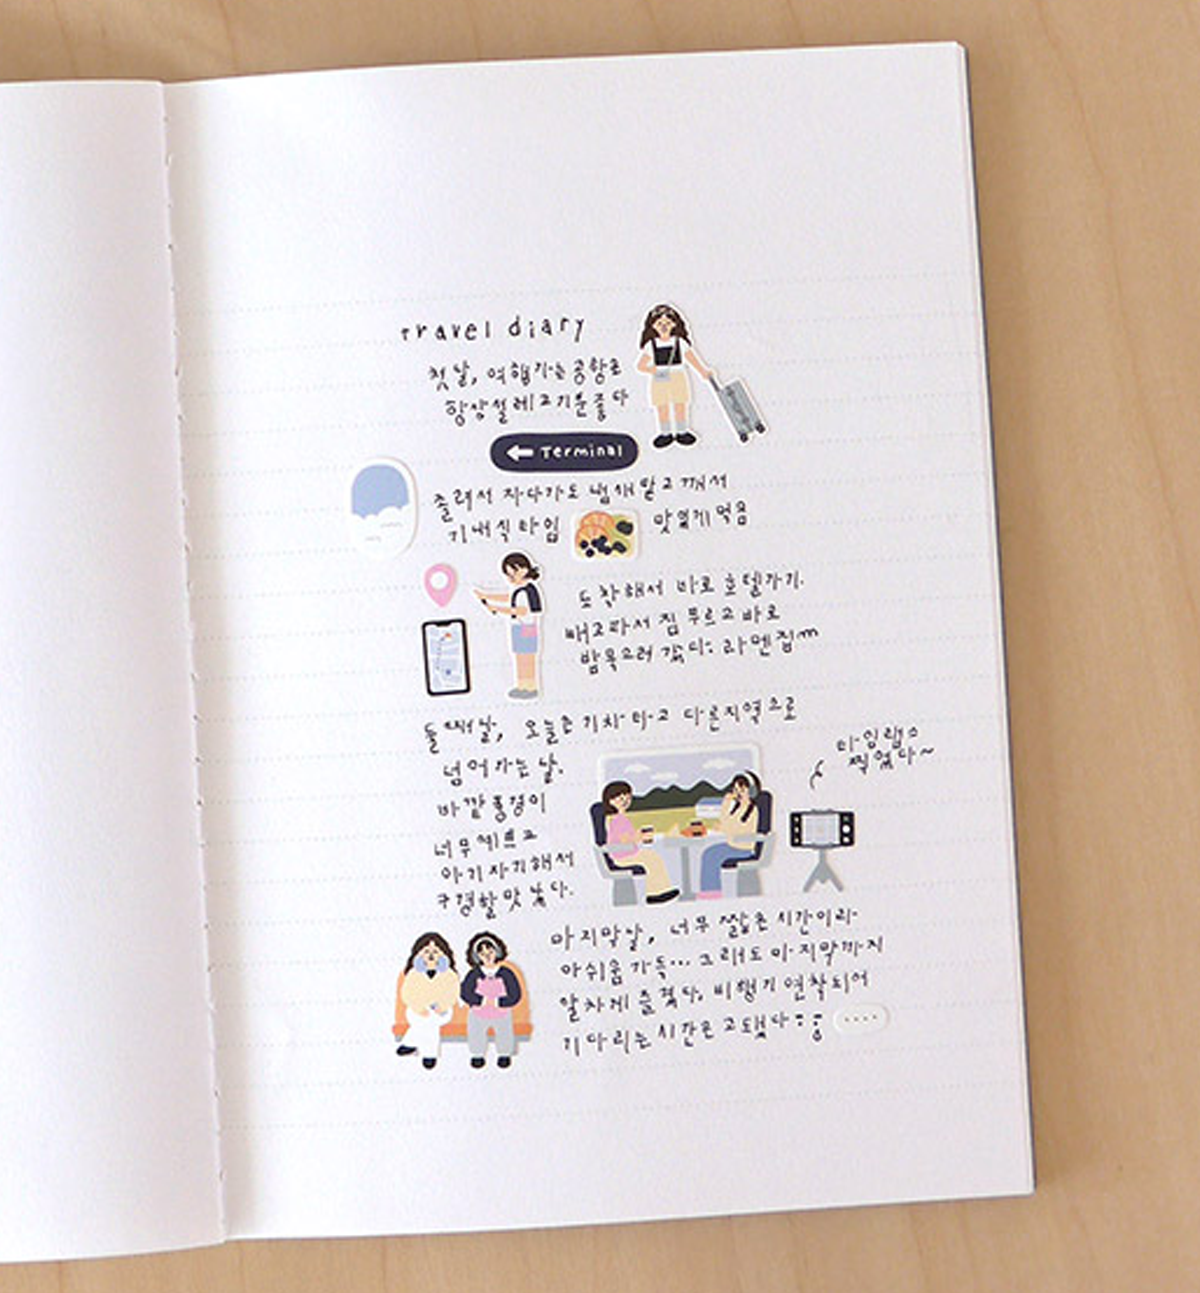 Travel diary
첫날, 여행가는 공항은
항상 설레고 기분 좋다
← Terminal
졸려서 자다가도 냄새 맡고 깨서
기내식타임 맛있게 먹음
도착해서 바로 호텔가기.
배고파서 짐 푸르고 바로
밥먹으러 갔다: 라멘집m
둘째날, 오늘은 기차타고 다른지역으로
넘어가는 날.
타임랩스
찍었다~
바깥 풍경이
너무 예쁘고
아기자기해서
구경할 맛 났다.
마지막날, 너무 짧은 시간이라
아쉬움 가득... 그래도 마지막까지
알차게 즐겼다. 비행기 연착되어
기다리는 시간은 고됐다
....